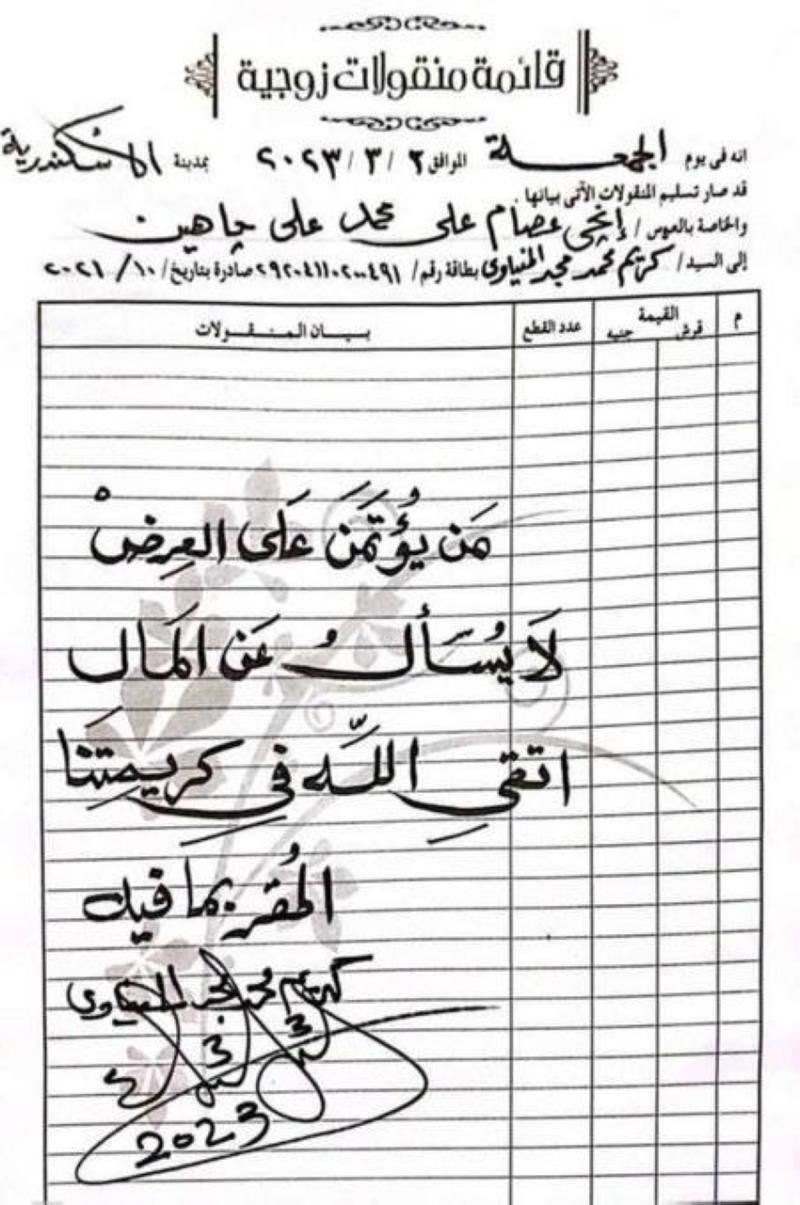 قائمة منقولات زوجية
انه فى يوم الجمعــــة الموافق ٣ / ٣ / ٢٠٢٣ بمدينة الاسكندرية
قد صار تسليم المنقولات الآتى بيانها
والخاصة بالعروس / إنجى عصام على محمد على چاهين
إلى السيد / كريم محمد مجد المنياوى بطاقة رقم / ٢٩٢٠٤١١٠٢٠٠٤٩١ صادرة بتاريخ / ١٠ / ٢٠٢١
م القيمة عدد القطع بـيـــان الـمـــنـــقـــولات
قرش جنيه
مَن يُؤتَمَنَ عَلَى العِرضْ
لَا يُسَألُ عَن المَال
اتقىِ اللَّه فىِ كريمتِنَا
المُقر بما فيه
كريم محمد مجد المنياوى
3
3
2023